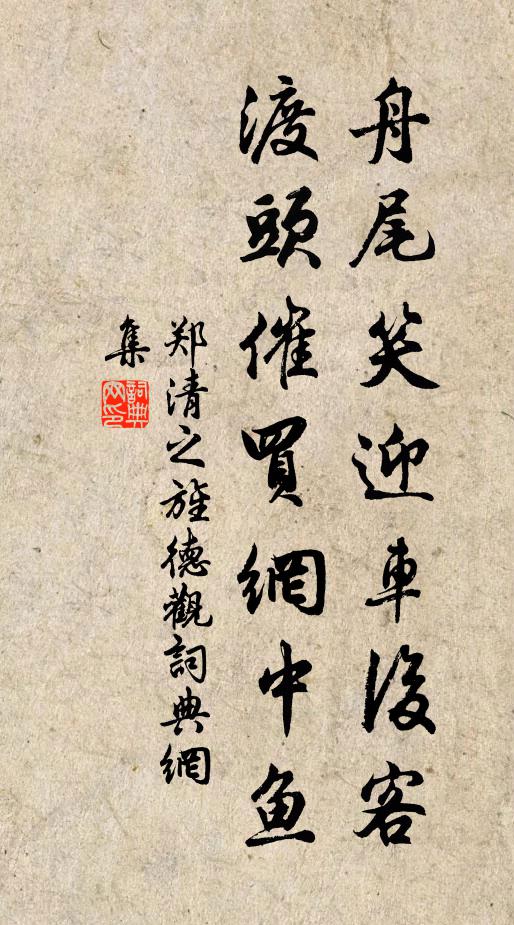 舟尾笑迎車後客
渡頭催買網中魚
郑清之旌德觀詞典網
集
詞典
网印